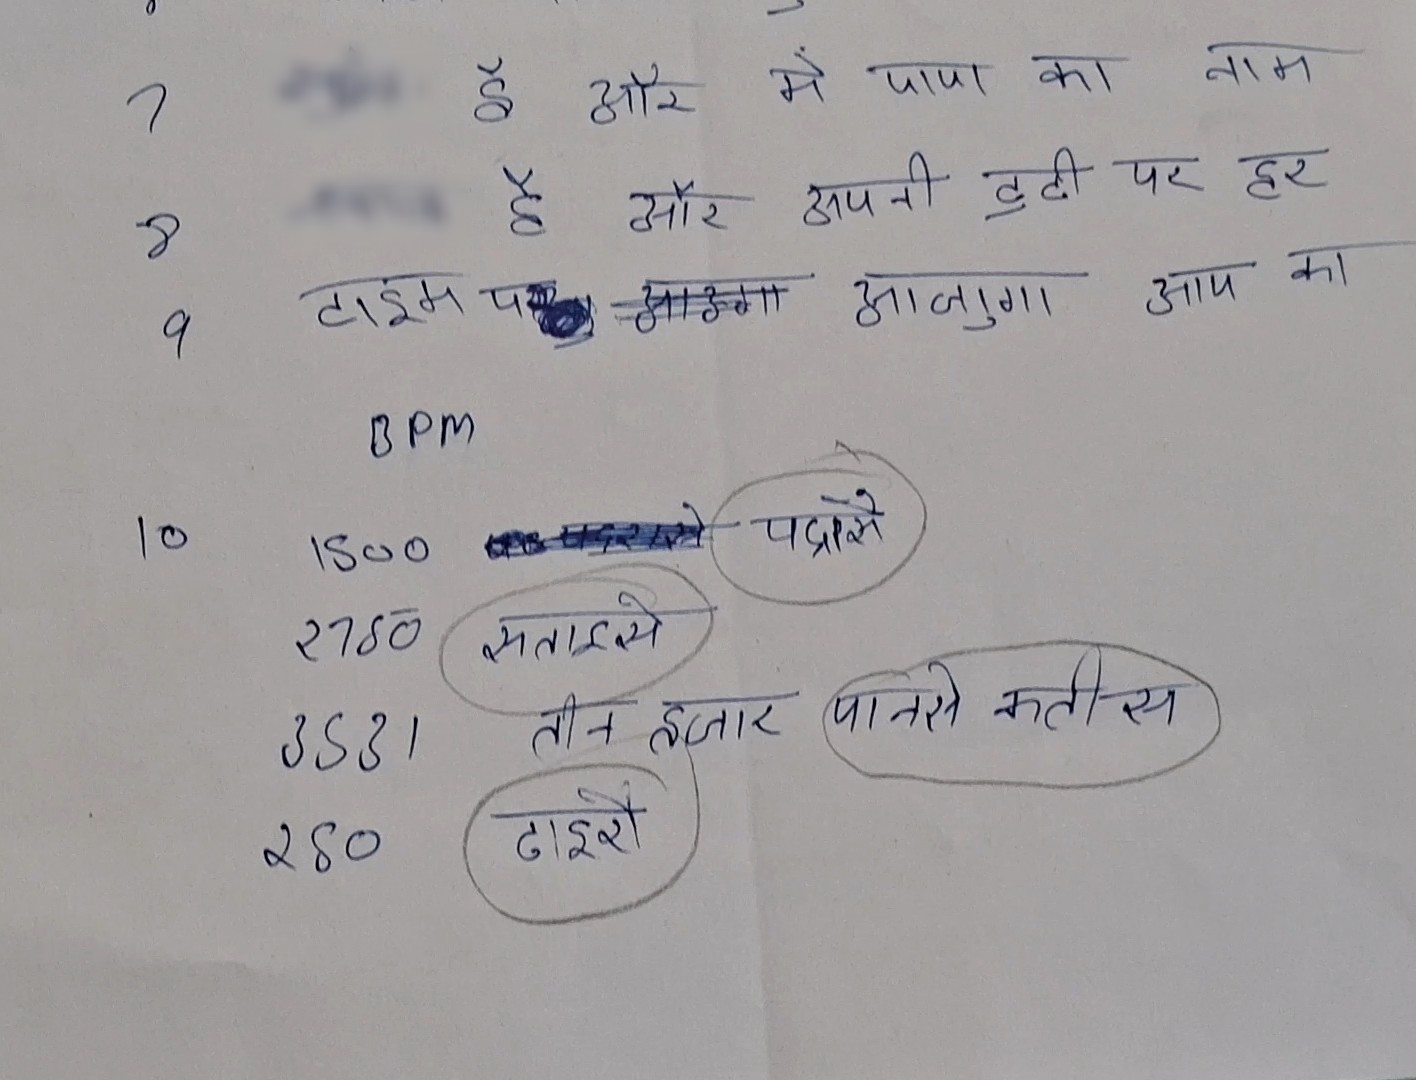 7 है और मे पापा का नाम
8 है और अपनी डुटी पर हर
9 टाइम पर आजुगा आप का
BPM
10 1500 पद्रोसे
2750 सताइसे
3531 तीन हजार पानसे कतीस
250 ढाइसे